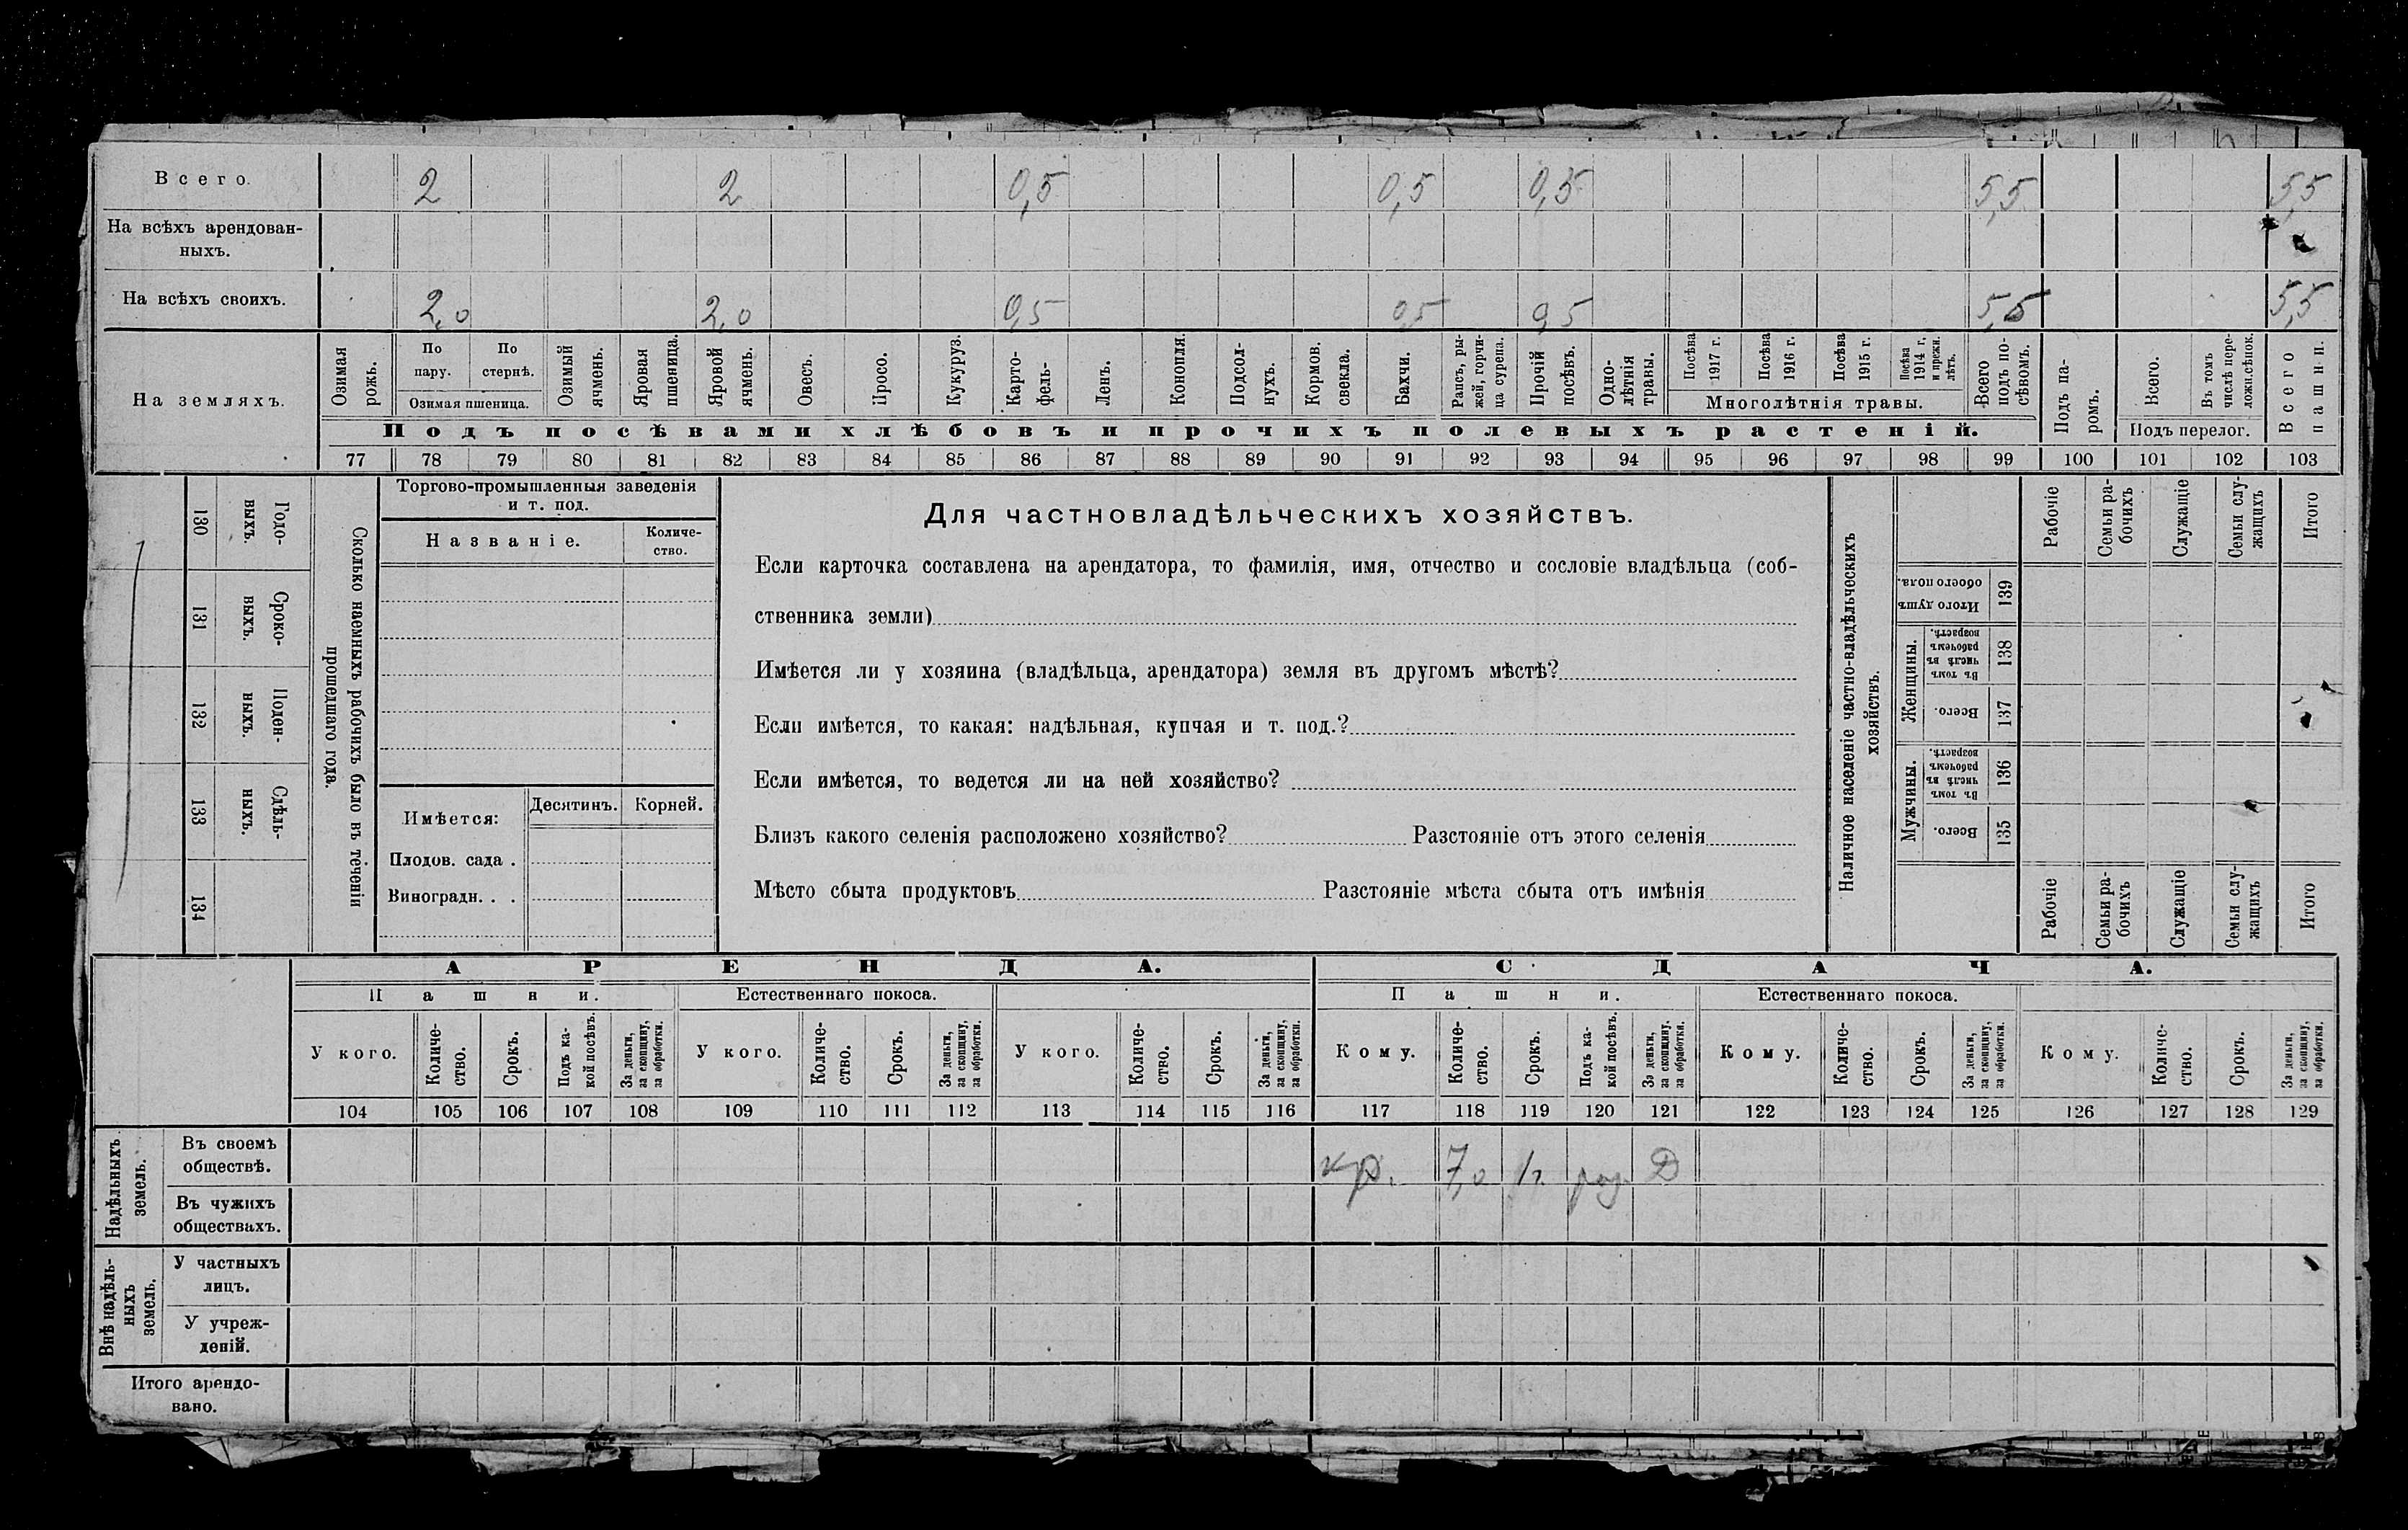 Всего. 2 2 0,5 0,5 0,5 5,5 5,5
На всѣхъ арендован-
ныхъ.
На всѣхъ своихъ. 2,0 2,0 0,5 0,5 0,5 5,5 5,5
На земляхъ.
Озимая рожь.
По пару.
По стернѣ.
Озимая пшеница.
Озимый ячмень.
Яровая пшеница.
Яровой ячмень.
Овесъ.
Просо.
Кукуруз.
Карто-
фель-
Ленъ.
Конопля.
Подсол-
нухъ.
Кормов. свекла.
Бахчи.
Рапсъ, ры-
жей, горчи-
ца сурепа.
Прочій посѣвъ.
Одно-
лѣтнія травы.
Посѣва 1917 г.
Посѣва 1916 г.
Посѣва 1915 г.
Посѣва 1914 г. и прежн. лѣтъ.
Многолѣтнія травы.
Всего подъ по-
сѣвомъ.
Подъ посѣвами хлѣбовъ и прочихъ полевыхъ растеній.
Подъ па-
ромъ.
Всего.
Въ томъ числѣ пере-
ложн.сѣнок.
Подъ перелог.
Всего пашни.
77 78 79 80 81 82 83 84 85 86 87 88 89 90 91 92 93 94 95 96 97 98 99 100 101 102 103
130 Годо-
выхъ.
131 Сроко-
выхъ.
132 Поден-
ныхъ.
133 Сдѣль-
ныхъ.
134
Сколько наемныхъ рабочихъ было въ теченіи
прошедшаго года.
Торгово-промышленныя заведенія
и т. под.
Названіе.
Количе-
ство.
Имѣется:
Десятинъ. Корней.
Плодов. сада .
Виноградн. . .
Для частновладѣльческихъ хозяйствъ.
Если карточка составлена на арендатора, то фамилія, имя, отчество и сословіе владѣльца (соб-
ственника земли)
Имѣется ли у хозяина (владѣльца, арендатора) земля въ другомъ мѣстѣ?
Если имѣется, то какая: надѣльная, купчая и т. под.?
Если имѣется, то ведется ли на ней хозяйство?
Близъ какого селенія расположено хозяйство? Разстояніе отъ этого селенія
Мѣсто сбыта продуктовъ Разстояніе мѣста сбыта отъ имѣнія
Наличное населеніе частно-владѣльческихъ
хозяйствъ.
Рабочіе
Семьи ра-
бочихъ
Служащіе
Семьи слу-
жащихъ
Итого
Итого душъ обоего пола. 139
Женщины.
Въ томъ числѣ въ рабочемъ возрастѣ. 138
Всего. 137
Мужчины.
Въ томъ числѣ въ рабочемъ возрастѣ. 136
Всего. 135
Рабочіе
Семьи ра-
бочихъ
Служащіе
Семьи слу-
жащихъ
Итого
АРЕНДА. СДАЧА.
Пашни. Естественнаго покоса. Пашни. Естественнаго покоса.
У кого.
Количе-
ство.
Срокъ.
Подъ ка-
кой посѣвъ.
За деньги,
за скопщину,
за обработки.
У кого.
Количе-
ство.
Срокъ.
За деньги,
за скопщину,
за обработки.
У кого.
Количе-
ство.
Срокъ.
За деньги,
за скопщину,
за обработки.
Кому.
Количе-
ство.
Срокъ.
Подъ ка-
кой посѣвъ.
За деньги,
за скопщину,
за обработки.
Кому.
Количе-
ство.
Срокъ.
За деньги,
за скопщину,
за обработки.
Кому.
Количе-
ство.
Срокъ.
За деньги,
за скопщину,
за обработки.
104 105 106 107 108 109 110 111 112 113 114 115 116 117 118 119 120 121 122 123 124 125 126 127 128 129
Надѣльныхъ
земель.
Въ своемъ
обществѣ.
кр. 7,0 1г. Д
Въ чужихъ
обществахъ.
Внѣ надѣль-
ныхъ
земель.
У частныхъ
лицъ.
У учреж-
деній.
Итого арендо-
вано.